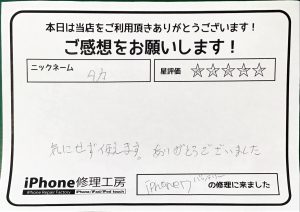 本日は当店をご利用頂きありがとうございます！
ご感想をお願いします！
ニックネーム タカ 星評価 ☆☆☆☆☆
気にせず使えます。ありがとうございました
iPhone修理工房 iPhone7 の修理に来ました
iPhone Repair Factory iPhone/iPad/iPod touch